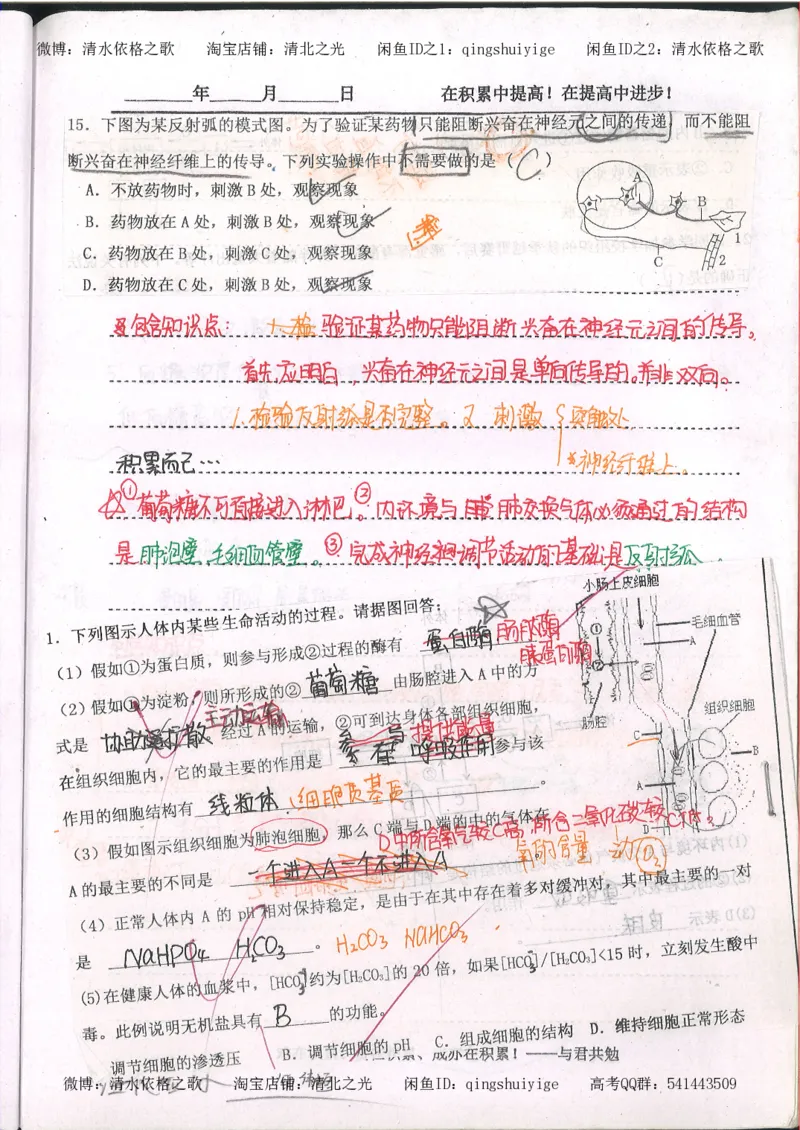 微博：清水依格之歌 淘宝店铺：清北之光 闲鱼ID之1：qingshuiyige 闲鱼ID之2：清水依格之歌
年 月 日 在积累中提高！在提高中进步！
15．下图为某反射弧的模式图。为了验证某药物只能阻断兴奋在神经元之间的传递，而不能阻
断兴奋在神经纤维上的传导。下列实验操作中不需要做的是（ C ）
A．不放药物时，刺激B处，观察现象
B．药物放在A处，刺激B处，观察现象
C．药物放在B处，刺激C处，观察现象
D．药物放在C处，刺激B处，观察现象
1.检
A
B
C
1
2
包含知识点： 1.检 验证某药物只能阻断兴奋在神经元之间的传导。
首先应明白，兴奋在神经元之间是单向传导的。并非双向。
1.检验反射弧是否完整。2 刺激 突触处
神经纤维上。
积累而已…
①葡萄糖不可直接进入淋巴。②内环境与肺交换气体必须通过的结构
是肺泡壁，毛细血管壁。③完成神经调节活动的基础是反射弧
1．下列图示人体内某些生命活动的过程。请据图回答：
（1）假如①为蛋白质，则参与形成②过程的酶有 蛋白酶 肠肽酶 胰蛋白酶
（2）假如①为淀粉，则所形成的② 葡萄糖 由肠腔进入A中的方
式是 协助扩散 主动运输 经过A的运输，②可到达身体各部组织细胞，
在组织细胞内，它的最主要的作用是 参与呼吸作用 提供能量 参与该
作用的细胞结构有 线粒体 细胞质基质 。
（3）假如图示组织细胞为肺泡细胞，那么C端与D端的中的气体在
D中所含氧气较C高，所含二氧化碳较C低。
A的最主要的不同是 一个进入A一个不进入A 氧的含量
（4）正常人体内A的pH相对保持稳定，是由于在其中存在着多对缓冲对，其中最主要的一对
是 NaHPO4 H2CO3 。 H2CO3 NaHCO3
(5)在健康人体的血浆中，[HCO3-]约为[H2CO3]的20倍，如果[HCO3-]/[H2CO3]<15时，立刻发生酸中
毒。此例说明无机盐具有 B 的功能。
调节细胞的渗透压 B．调节细胞的pH C．组成细胞的结构 D．维持细胞正常形态
小肠上皮细胞
毛细血管
A
①
②
肠腔
组织细胞
C
B
A
D
成亦在积累！——与君共勉
微博：清水依格之歌 淘宝店铺：清北之光 闲鱼ID：qingshuiyige 高考QQ群：541443509